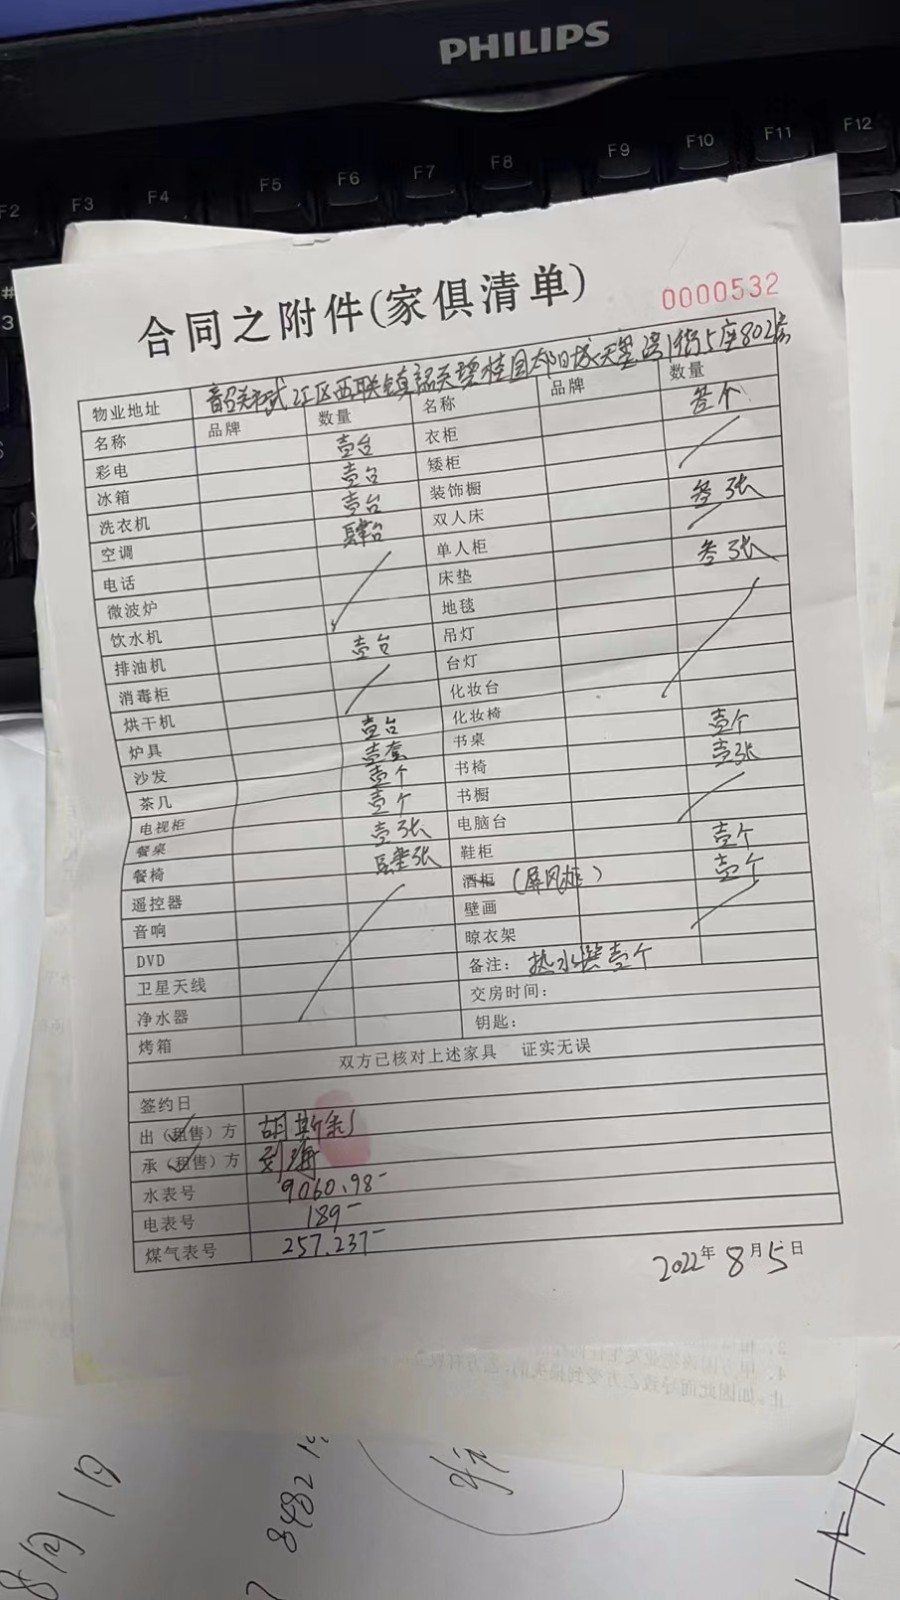 PHILIPS
F2 F3 F4 F5 F6 F7 F8 F9 F10 F11 F12
合同之附件(家俱清单)
0000532
物业地址 韶关市武江区西联镇韶关碧桂园太阳城天玺湾1街5座802房
名称 品牌 数量 名称 品牌 数量
彩电 壹台 衣柜 叁个
冰箱 壹台 矮柜
洗衣机 壹台 装饰橱
空调 肆台 双人床 叁张
电话 单人柜
微波炉 床垫 叁张
饮水机 地毯
排油机 壹台 吊灯
消毒柜 台灯
烘干机 化妆台
炉具 壹台 化妆椅
沙发 壹套 书桌 壹个
茶几 壹个 书椅 壹张
电视柜 壹个 书橱
餐桌 壹张 电脑台
餐椅 肆张 鞋柜 壹个
遥控器 酒柜 (屏风柜) 壹个
音响 壁画
DVD 晾衣架
卫星天线 备注: 热水器壹个
净水器 交房时间:
烤箱 钥匙:
双方已核对上述家具 证实无误
签约日
出(租售)方
承(租售)方 刘海
水表号 9060.98-
电表号 189-
煤气表号 257.237-
2022年8月5日
8月1日
8482